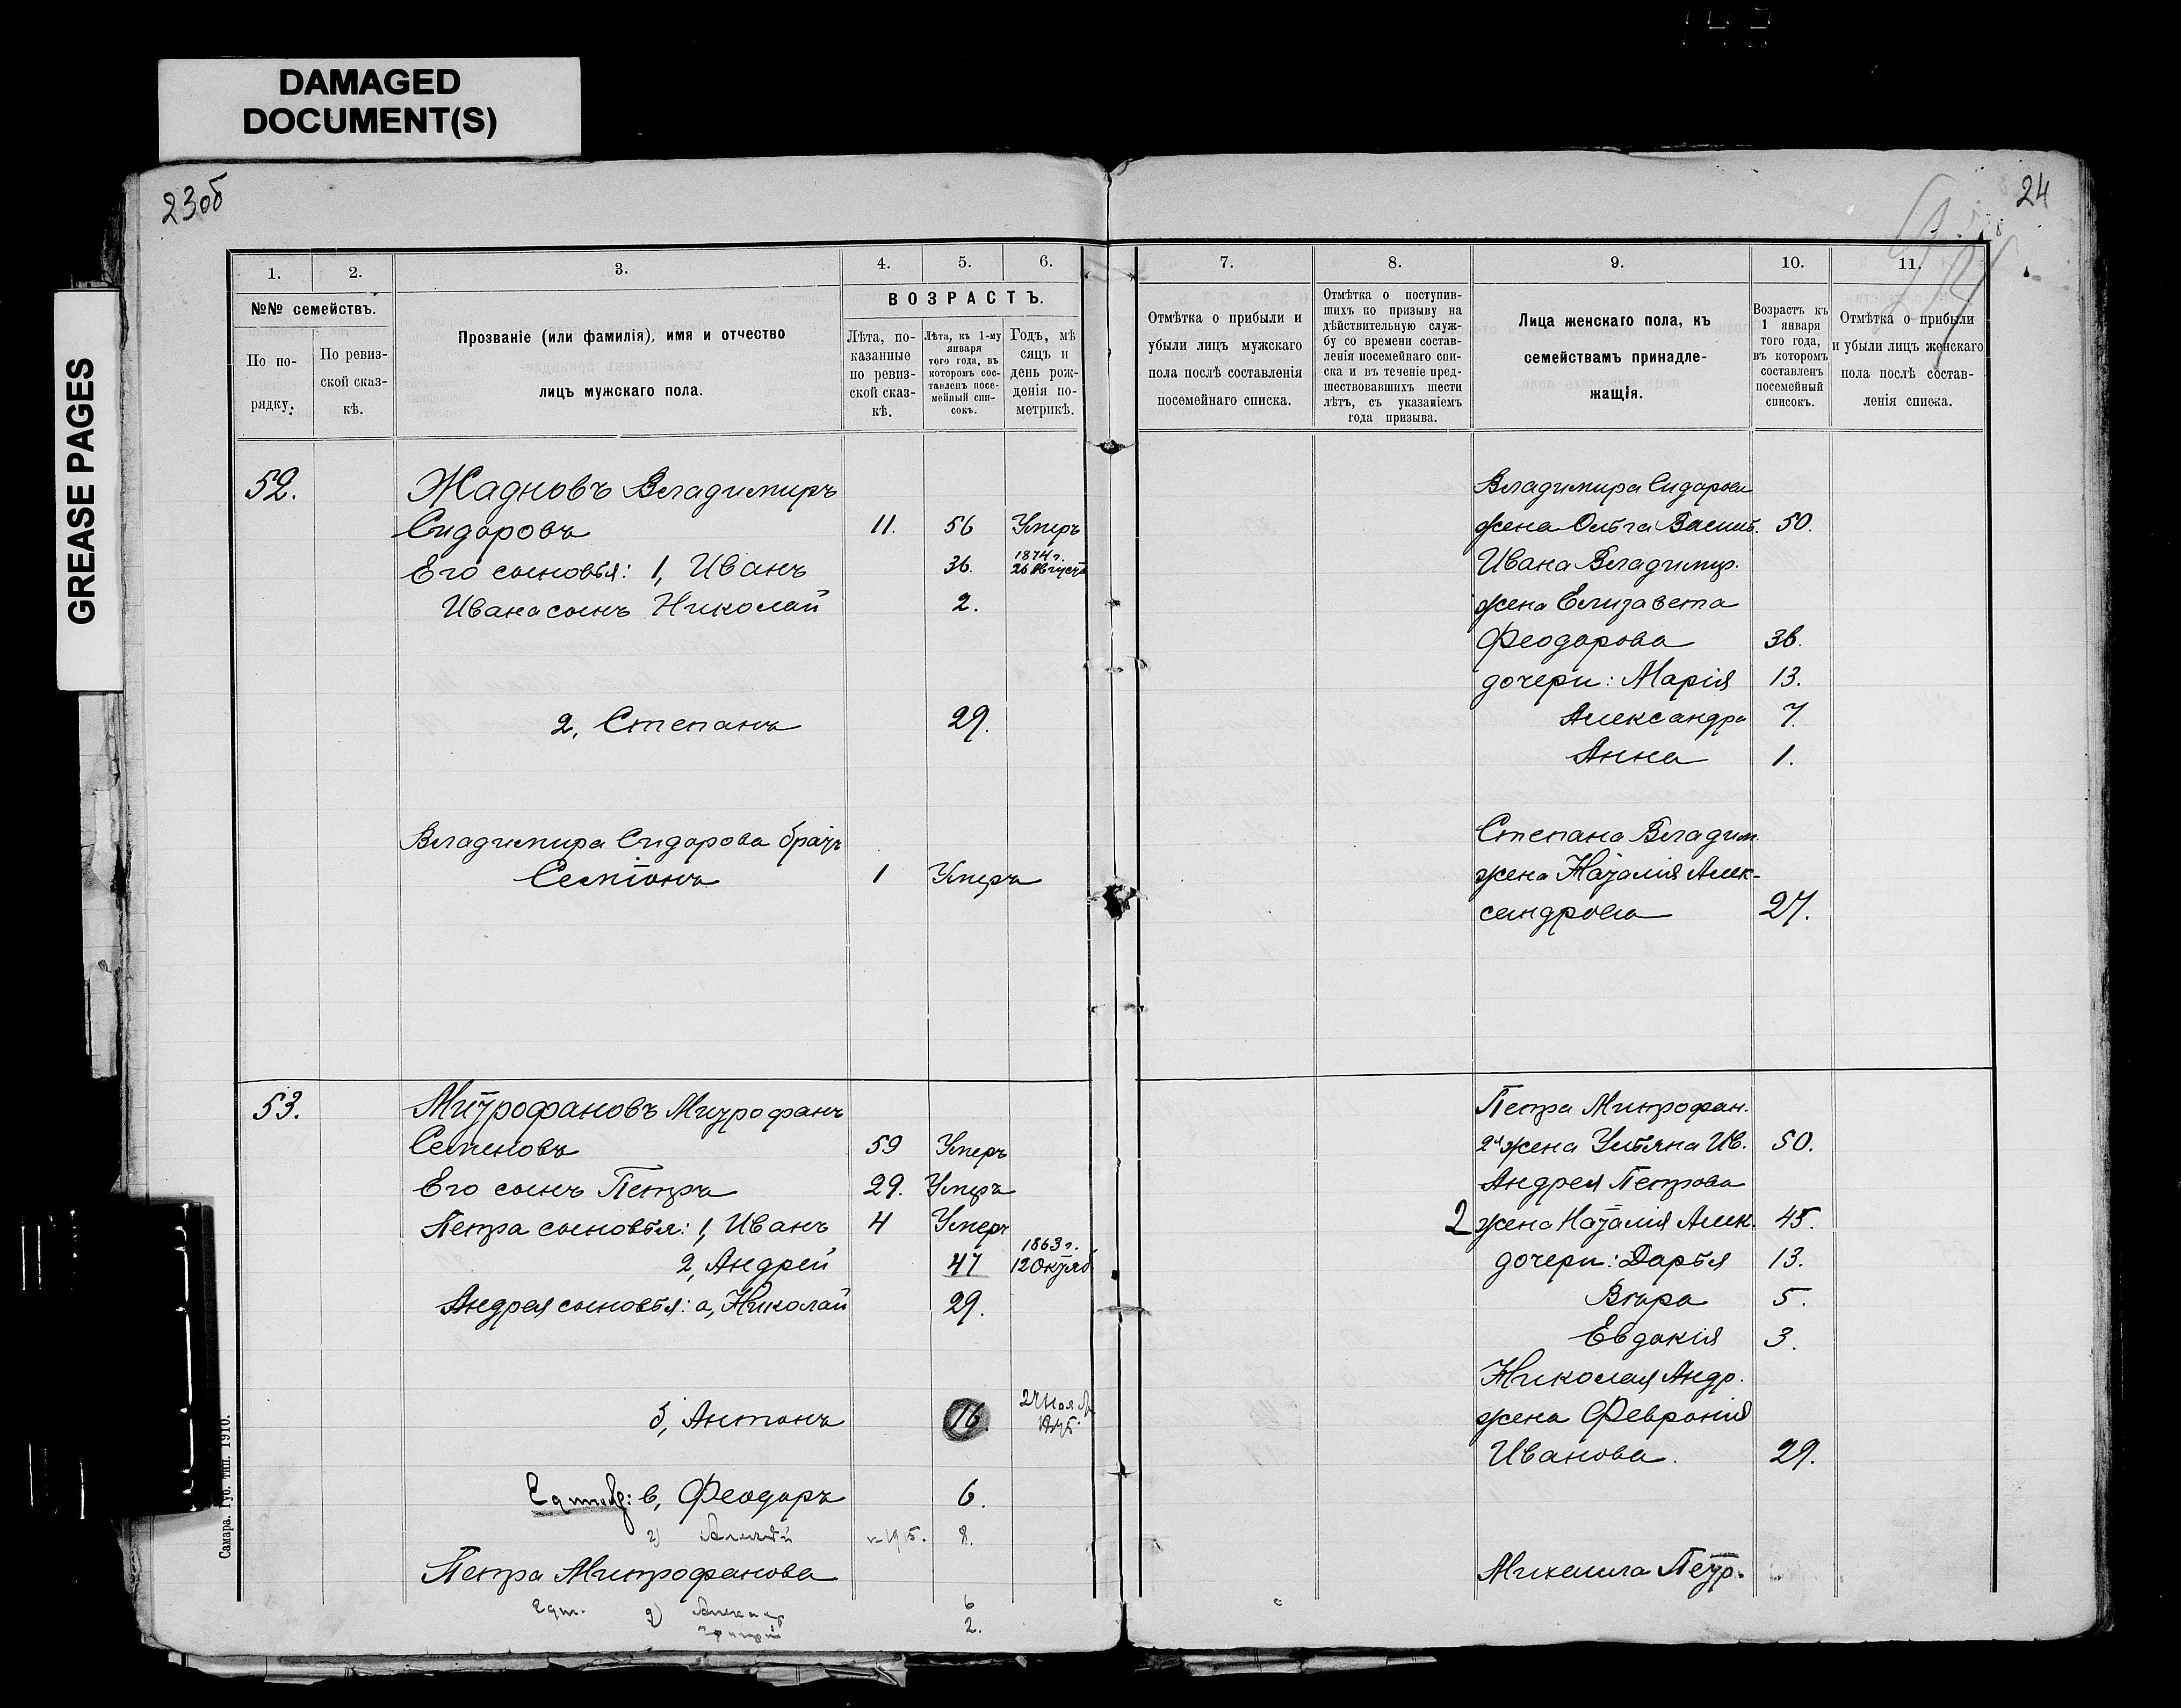 DAMAGED
DOCUMENT(S)
GREASE PAGES
23об
24
1.
2.
3.
4.
5.
6.
№№ семействъ.
По по-
рядку.
По ревиз-
ской сказ-
кѣ.
Прозваніе (или фамилія), имя и отчество
лицъ мужскаго пола.
ВОЗРАСТЪ.
Лѣта, по-
казанные
по ревиз-
ской сказ-
кѣ.
Лѣта, къ 1-му
января
того года, въ
которомъ сос-
тавленъ посе-
мейный спи-
сокъ.
Годъ, мѣ
сяцъ и
день рож-
денія по-
метрикѣ.
52.
Жадновъ Владимиръ
Сидоровъ 11. 56 Умеръ
Его сыновья: 1, Иванъ 36. 1874 г.
26 Августа
Ивана сынъ Николай 2.
2, Степанъ 29.
Владимира Сидорова братъ
Семіонъ 1 Умеръ
53.
Митрофановъ Митрофанъ
Семеновъ 59 Умеръ
Его сынъ Петръ 29. Умеръ
Петра сыновья: 1, Иванъ 4 Умеръ
2, Андрей 47 1863 г.
12 Октяб
Андрея сыновья: а, Николай 29.
б, Антонъ 16.
в, Феодоръ 6.
2) 8.
Петра Митрофанова
2) 6
2.
Самара. Губ. тип. 1910.
7.
8.
9.
10.
11.
Отмѣтка о прибыли и
убыли лицъ мужскаго
пола послѣ составленія
посемейнаго списка.
Отмѣтка о поступив-
шихъ по призыву на
дѣйствительную служ-
бу со времени состав-
ленія посемейнаго спи-
ска и въ теченіе пред-
шествовавшихъ шести
лѣтъ, съ указаніемъ
года призыва.
Лица женскаго пола, къ
семействамъ принадле-
жащія.
Возрастъ къ
1 января
того года,
въ которомъ
составленъ
посемейный
списокъ.
Отмѣтка о прибыли
и убыли лицъ женскаго
пола послѣ состав-
ленія списка.
Владимира Сидорова
жена Ольга Васил. 50.
Ивана Владимир.
жена Елизавета
Феодорова 36.
дочери: Марія 13.
Александра 7.
Анна 1.
Степана Владим.
жена Наталія Алек-
сандрова 27.
Петра Митрофан.
2я жена Ульяна Ив. 50.
Андрея Петрова
2 жена Наталія Алек. 45.
дочери: Дарья 13.
Вѣра 5.
Евдокія 3.
Николая Андр.
жена Февронія
Иванова. 29.
Михаила Петр.